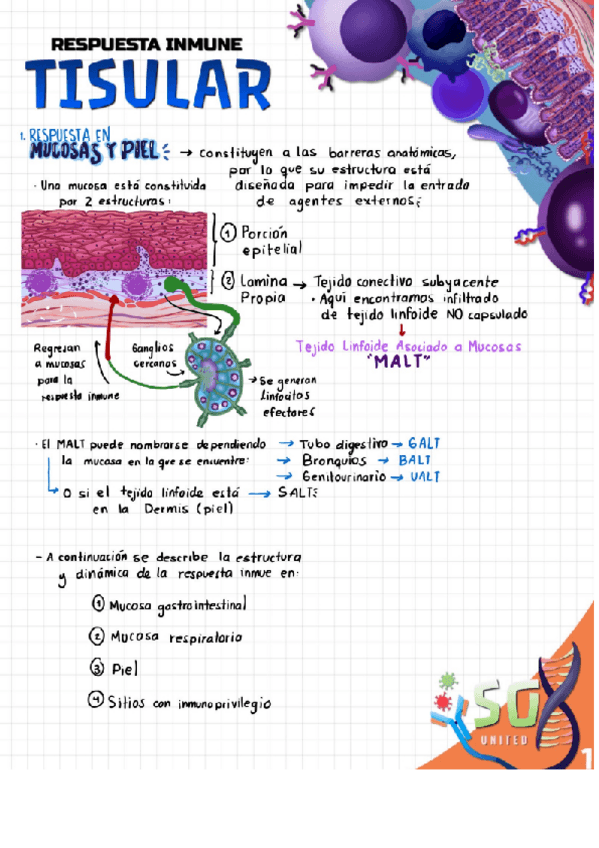 RESPUESTA INMUNE
TISULAR
1. RESPUESTA EN
MUCOSAS Y PIEL:
→ Constituyen a las barreras anatómicas,
por lo que su estructura está
diseñada para impedir la entrada
de agentes externos:
· Una mucosa está constituida
por 2 estructuras:
① Porción
epitelial
② Lamina → Tejido conectivo subyacente
Propia
· Aqui encontramos infiltrado
de tejido linfoide NO capsulado
Tejido Linfoide Asociado a Mucosas
"MALT"
Regresan
a mucosas
para la
respuesta inmune
Ganglios
cercanos
→ Se generan
linfocitos
efectores
· El MALT puede nombrarse dependiendo
la mucosa en la que se encuentre:
→ Tubo digestivo → GALT
→ Bronquios → BALT
→ Genitourinario → UALT
O si el tejido linfoide está → SALT:
en la Dermis (piel)
- A continuación se describe la estructura
y dinámica de la respuesta inmue en:
① Mucosa gastrointestinal
② Mucosa respiratorio
③ Piel
④ Sitios con inmunoprivilegio
SG
UNITED
1